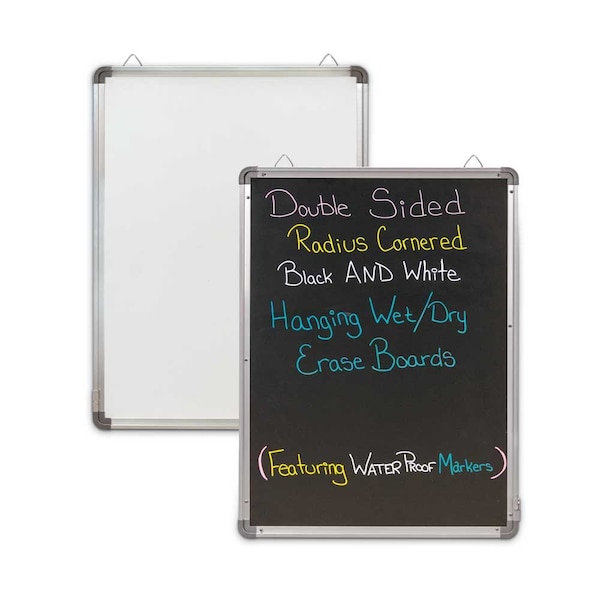 Double Sided
Radius Cornered
Black AND White
Hanging Wet/Dry
Erase Boards
(Featuring WATERPROOF Markers)